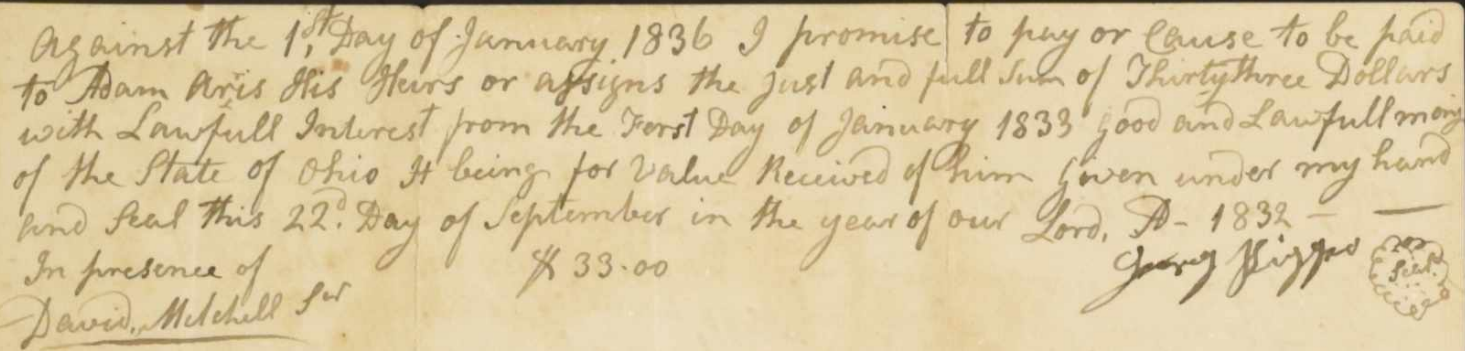 Against the 1st, Day of January 1836 I promise to pay or Cause to be paid
to Adam Aris His Heirs or assigns the Just and full Sum of Thirtythree Dollars
with Lawfull Interest from the Ferst Day of January 1833 good and Lawfull mony
of the State of Ohio It being for Value Received of him Given under my hand
and Seal this 22d. Day of September in the year of our Lord, AD - 1832 - —
In presence of $ 33.00 Seal
David, Mitchell Ser